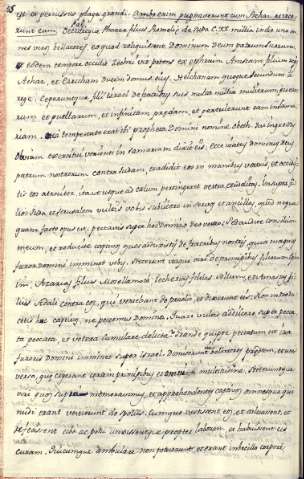 est percussus plaga grandi. Ambo enim pugnaverunt cum Achaz
cum Occiditque Phacee filius Romeliæ de Juda CXX millia in die uno om
nes viros bellatores, eo quod reliquissent Dominum Deum patrum suorum.
eodem tempore occidit Zechri vir potens ex Ephraim filium regis
Achaz, et Ezricham ducem domus ejus, Helchanam quoque secundum a
rege. Ceperuntque filii israel de fratribus suis ducenta millia mulierum, puero
rum et puellarum, et infinitam prædam, et pertulerunt eam in Sama
riam. Ea tempestate erat ibi propheta Domini nomine Obeth qui egressus
obviam exercitui venienti in Samariam dixit eis: Ecce iratus Dominus Deus
patrum vestrorum contra Judam, tradidit eos in manibus vestris, et occidis
tis eos atrociter, ita ut usque ad cœlum pertingeret vestra crudelitas. Insuper fi
lios Juda, et Jerusalem vultis vobis subjicere in servos et ancillas, quod nequa
quam facto opus est, peccavis super hoc Domino Deo vestro. Sed audite consilium
meum, et reducite captivos quos adduxistis de fratribus vestris, quia magnus
furor Domini imminet vobis. Steterunt itaque viri de principibus filiorum Eph
raim, Azarias filius Mosollamoth, Ezechias filius Sellum, et Amasa fi
lius Adali contra eos, qui veniebant de prælio, et dixerunt eis: Non introdu
cetis huc captivos, ne peccemus Domino. Quare vultis adjicere super pecca
ta peccata, et vetera cumulare delicta? Grande quippe peccatum est, ira
furoris Domini imminet super Israel. Dimiserunt bellatores prædam, et uni
versa, quæ ceperant coram principibus et omni multitudine. Steteruntque
viri quos supra memoravimus, et apprehendentes captivos, omnesque qui
nudi erant vestierunt de spoliis. Cumque vestissent eos, et calceassent, et
refecissent cibo ac potu, unxissentque propter laborem, et habuissent eis
curam. Quicumque ambulare non poterant, et erant imbecillo corpore,